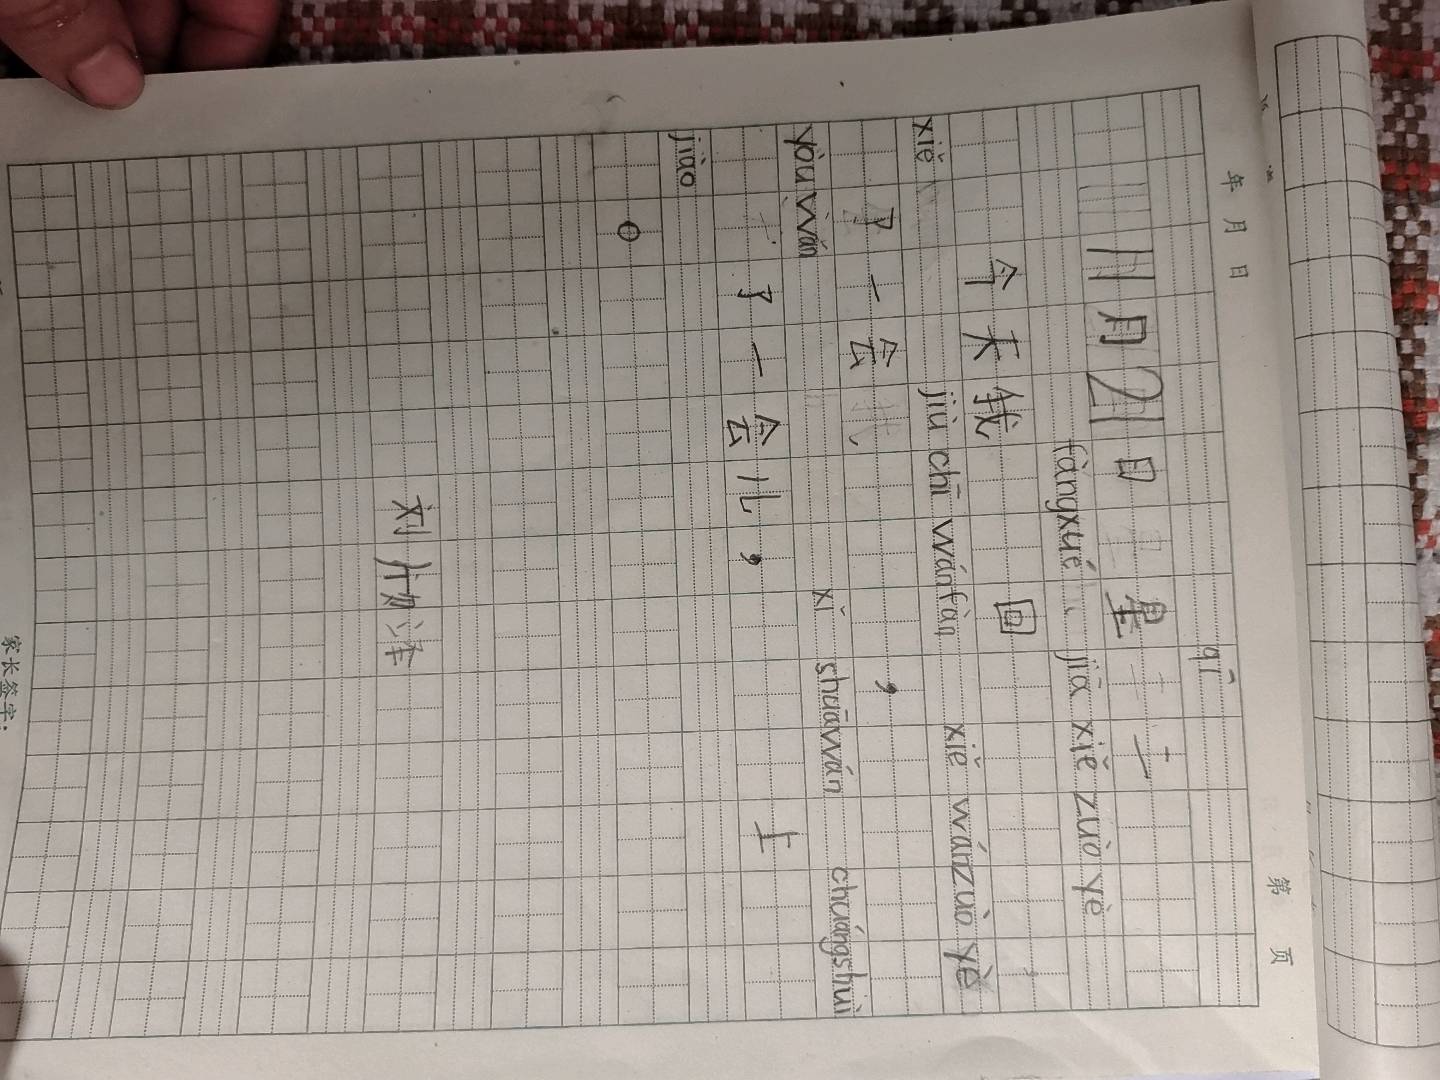 年 月 日 第 页
qī
11月21日 星 二
fàngxué jiā xiě zuò yè
今天我 回
xiě jiù chī wán fàn xiě wán zuò yè
了一会 ，
yòu wán xǐ shuā wán chuáng shuì
了一会儿， 上
jiào
。
刘
家长签字：